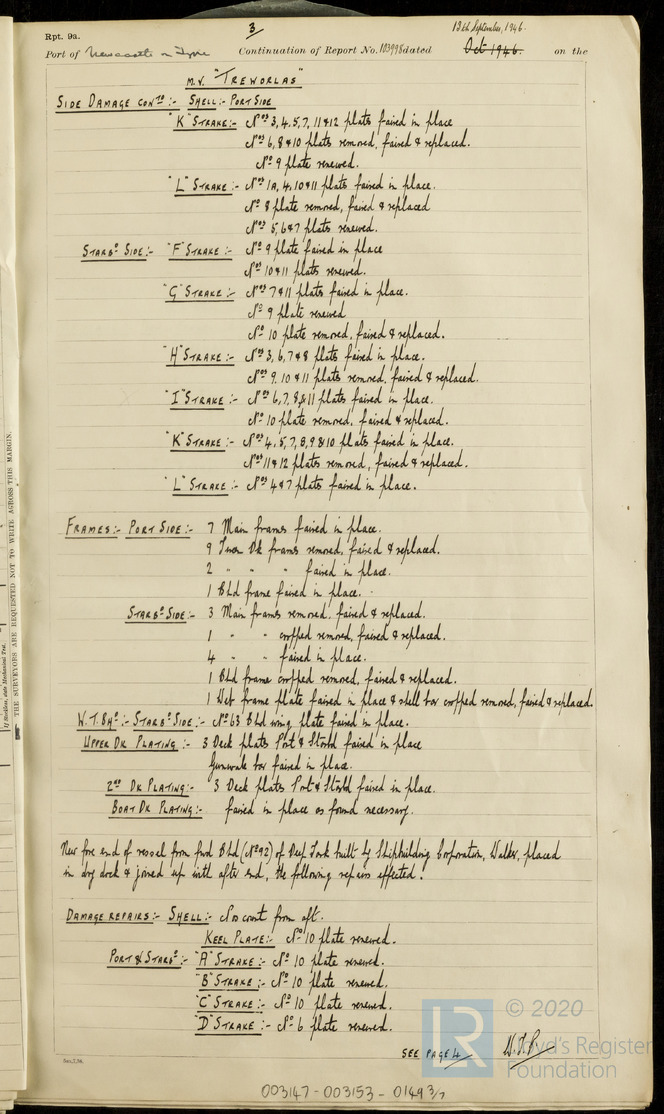 Rpt. 9a.
3
13th September, 1946.
Port of Newcastle on Tyne Continuation of Report No. 103998 dated Oct 1946. on the
M.V. "TREWORLAS"
SIDE DAMAGE CONTD :- SHELL :- PORT SIDE
"K" STRAKE :- Nos 3, 4, 5, 7, 11 & 12 plats faired in place
Nos 6, 8 & 10 plats removed, faired & replaced.
No 9 plate renewed.
"L" STRAKE :- Nos 1A, 4, 10 & 11 plats faired in place.
No 8 plate removed, faired & replaced
Nos 5, 6 & 7 plats renewed.
STARBD SIDE :- "F" STRAKE :- No 9 plate faired in place
Nos 10 & 11 plats renewed.
"G" STRAKE :- Nos 7 & 11 plats faired in place.
No 9 plate renewed
No 10 plate removed, faired & replaced.
"H" STRAKE :- Nos 3, 6, 7 & 8 plats faired in place.
Nos 9, 10 & 11 plats removed, faired & replaced.
"I" STRAKE :- Nos 6, 7, 8, & 11 plats faired in place.
No 10 plate removed, faired & replaced.
"K" STRAKE :- Nos 4, 5, 7, 8, 9 & 10 plats faired in place.
Nos 11 & 12 plats removed, faired & replaced.
"L" STRAKE :- Nos 4 & 7 plats faired in place.
FRAMES :- PORT SIDE :- 7 Main frames faired in place.
9 Tween Dk frames removed, faired & replaced.
2 " " " faired in place.
1 Bhd frame faired in place.
STARBD SIDE :- 3 Main frames removed, faired & replaced.
1 " " cropped removed, faired & replaced.
4 " " faired in place.
1 Bhd frame cropped removed, faired & replaced.
1 Web frame plate faired in place & shell bar cropped removed, faired & replaced.
W.T. BHD :- STARBD SIDE :- No 63 Bhd wing plate faired in place.
UPPER DK PLATING :- 3 Deck plats Port & Starbd faired in place
Gunwale bar faired in place.
2ND DK PLATING :- 3 Deck plats Port & Starbd faired in place.
BOAT DK PLATING :- faired in place as found necessary.
New fore end of vessel from fwd Bhd (No 92) of Deep Tank built by Shipbuilding Corporation, Walker, placed
in dry dock & joined up with after end, the following repairs effected :
DAMAGE REPAIRS :- SHELL :- Nos count from aft.
KEEL PLATE :- No 10 plate renewed.
PORT & STARBD :- "A" STRAKE :- No 10 plate renewed.
"B" STRAKE :- No 10 plate renewed.
"C" STRAKE :- No 10 plate renewed.
"D" STRAKE :- No 6 plate renewed.
SEE PAGE 4
THE SURVEYORS ARE REQUESTED NOT TO WRITE ACROSS THIS MARGIN.
LR
© 2020
Lloyd's Register
Foundation
003147 - 003153 - 0149 3/7